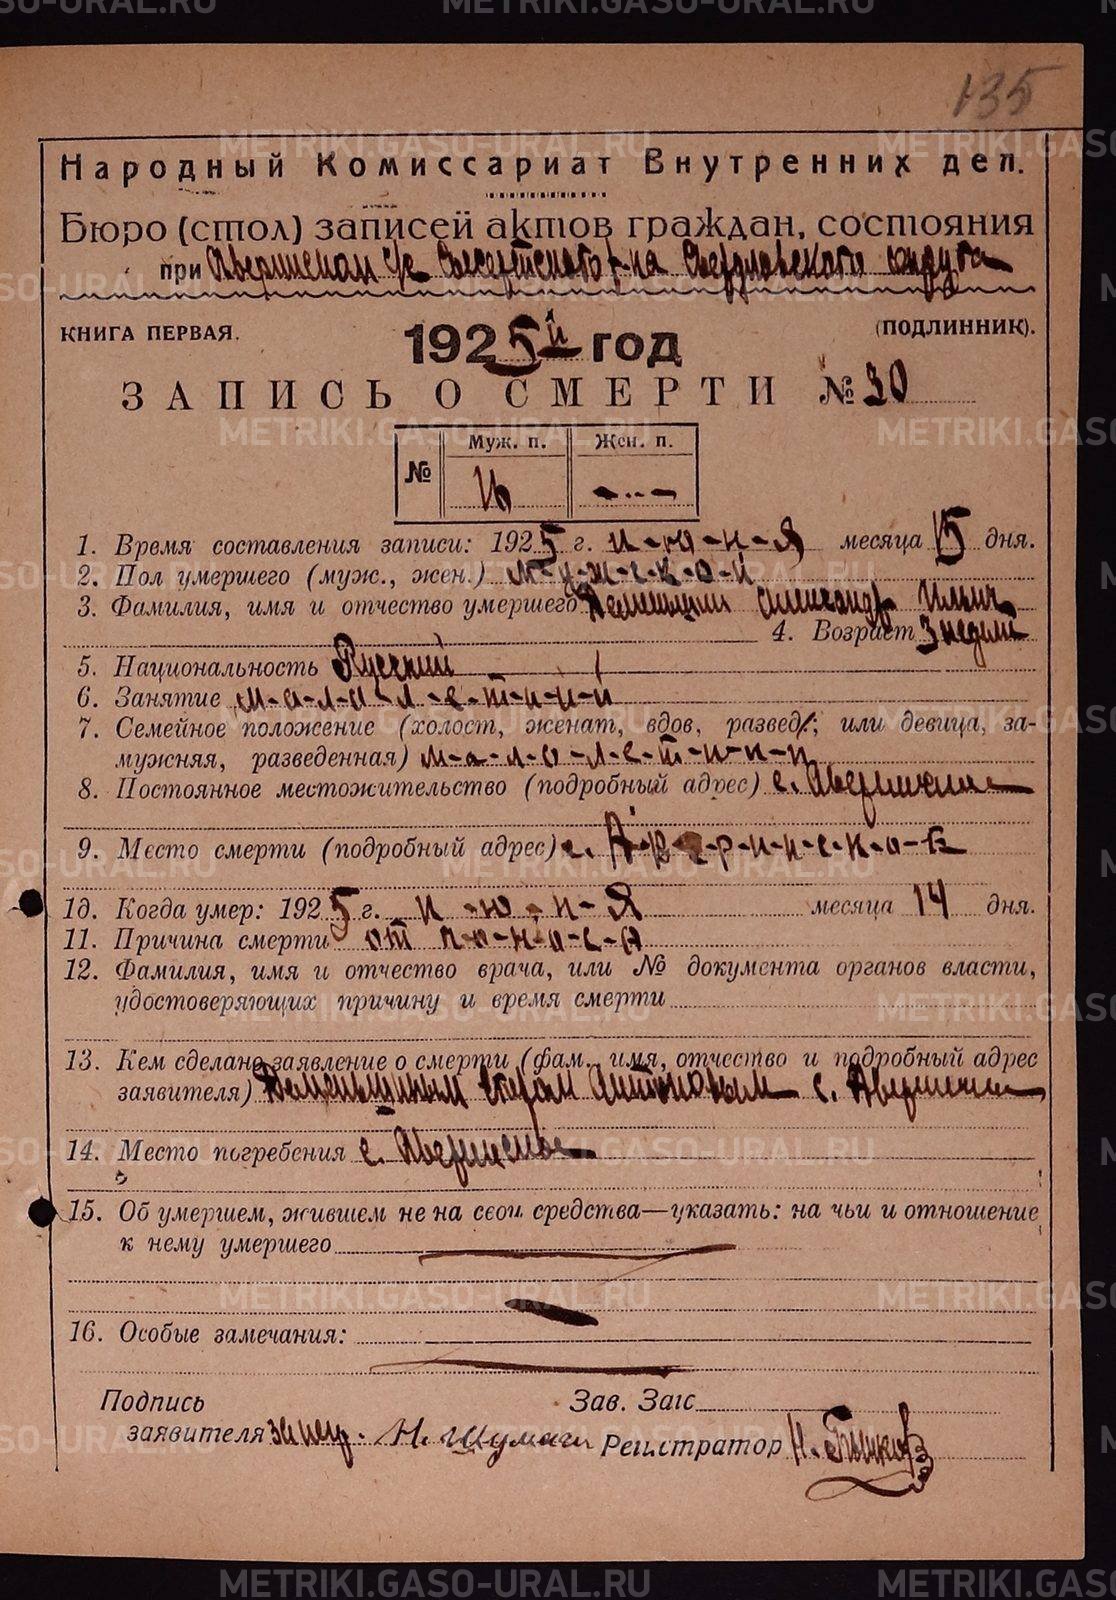 135
Народный Комиссариат Внутренних дел.
Бюро (стол) записей актов граждан, состояния
при Аверинском с/с Сысертского р-на Свердловского округа
КНИГА ПЕРВАЯ. 1925й год (ПОДЛИННИК).
ЗАПИСЬ О СМЕРТИ № 30
№ Муж. п. Жен. п.
1. Время составления записи: 1925 г. и-ю-н-я месяца 15 дня.
2. Пол умершего (муж., жен.) м-у-ж-с-к-о-й
3. Фамилия, имя и отчество умершего Александр Ильич
4. Возраст 3 недели
5. Национальность Русский
6. Занятие м-а-л-о-л-е-т-н-и-й
7. Семейное положение (холост, женат, вдов, развед.; или девица, за-
мужняя, разведенная) м-а-л-о-л-е-т-н-и-й
8. Постоянное местожительство (подробный адрес) с. Аверинское
9. Место смерти (подробный адрес) с. А-в-е-р-и-н-с-к-о-е
1д. Когда умер: 1925 г. и-ю-н-я месяца 14 дня.
11. Причина смерти от п-о-н-о-с-а
12. Фамилия, имя и отчество врача, или № документа органов власти,
удостоверяющих причину и время смерти
13. Кем сделано заявление о смерти (фам., имя, отчество и подробный адрес
заявителя) с. Аверинское
14. Место погребения с. Аверинское
15. Об умершем, жившем не на свои средства—указать: на чьи и отношение
к нему умершего
16. Особые замечания:
Подпись Зав. Загс
заявителя за негр. Н. Шумаги Регистратор Н.
METRIKI.GASO-URAL.RU